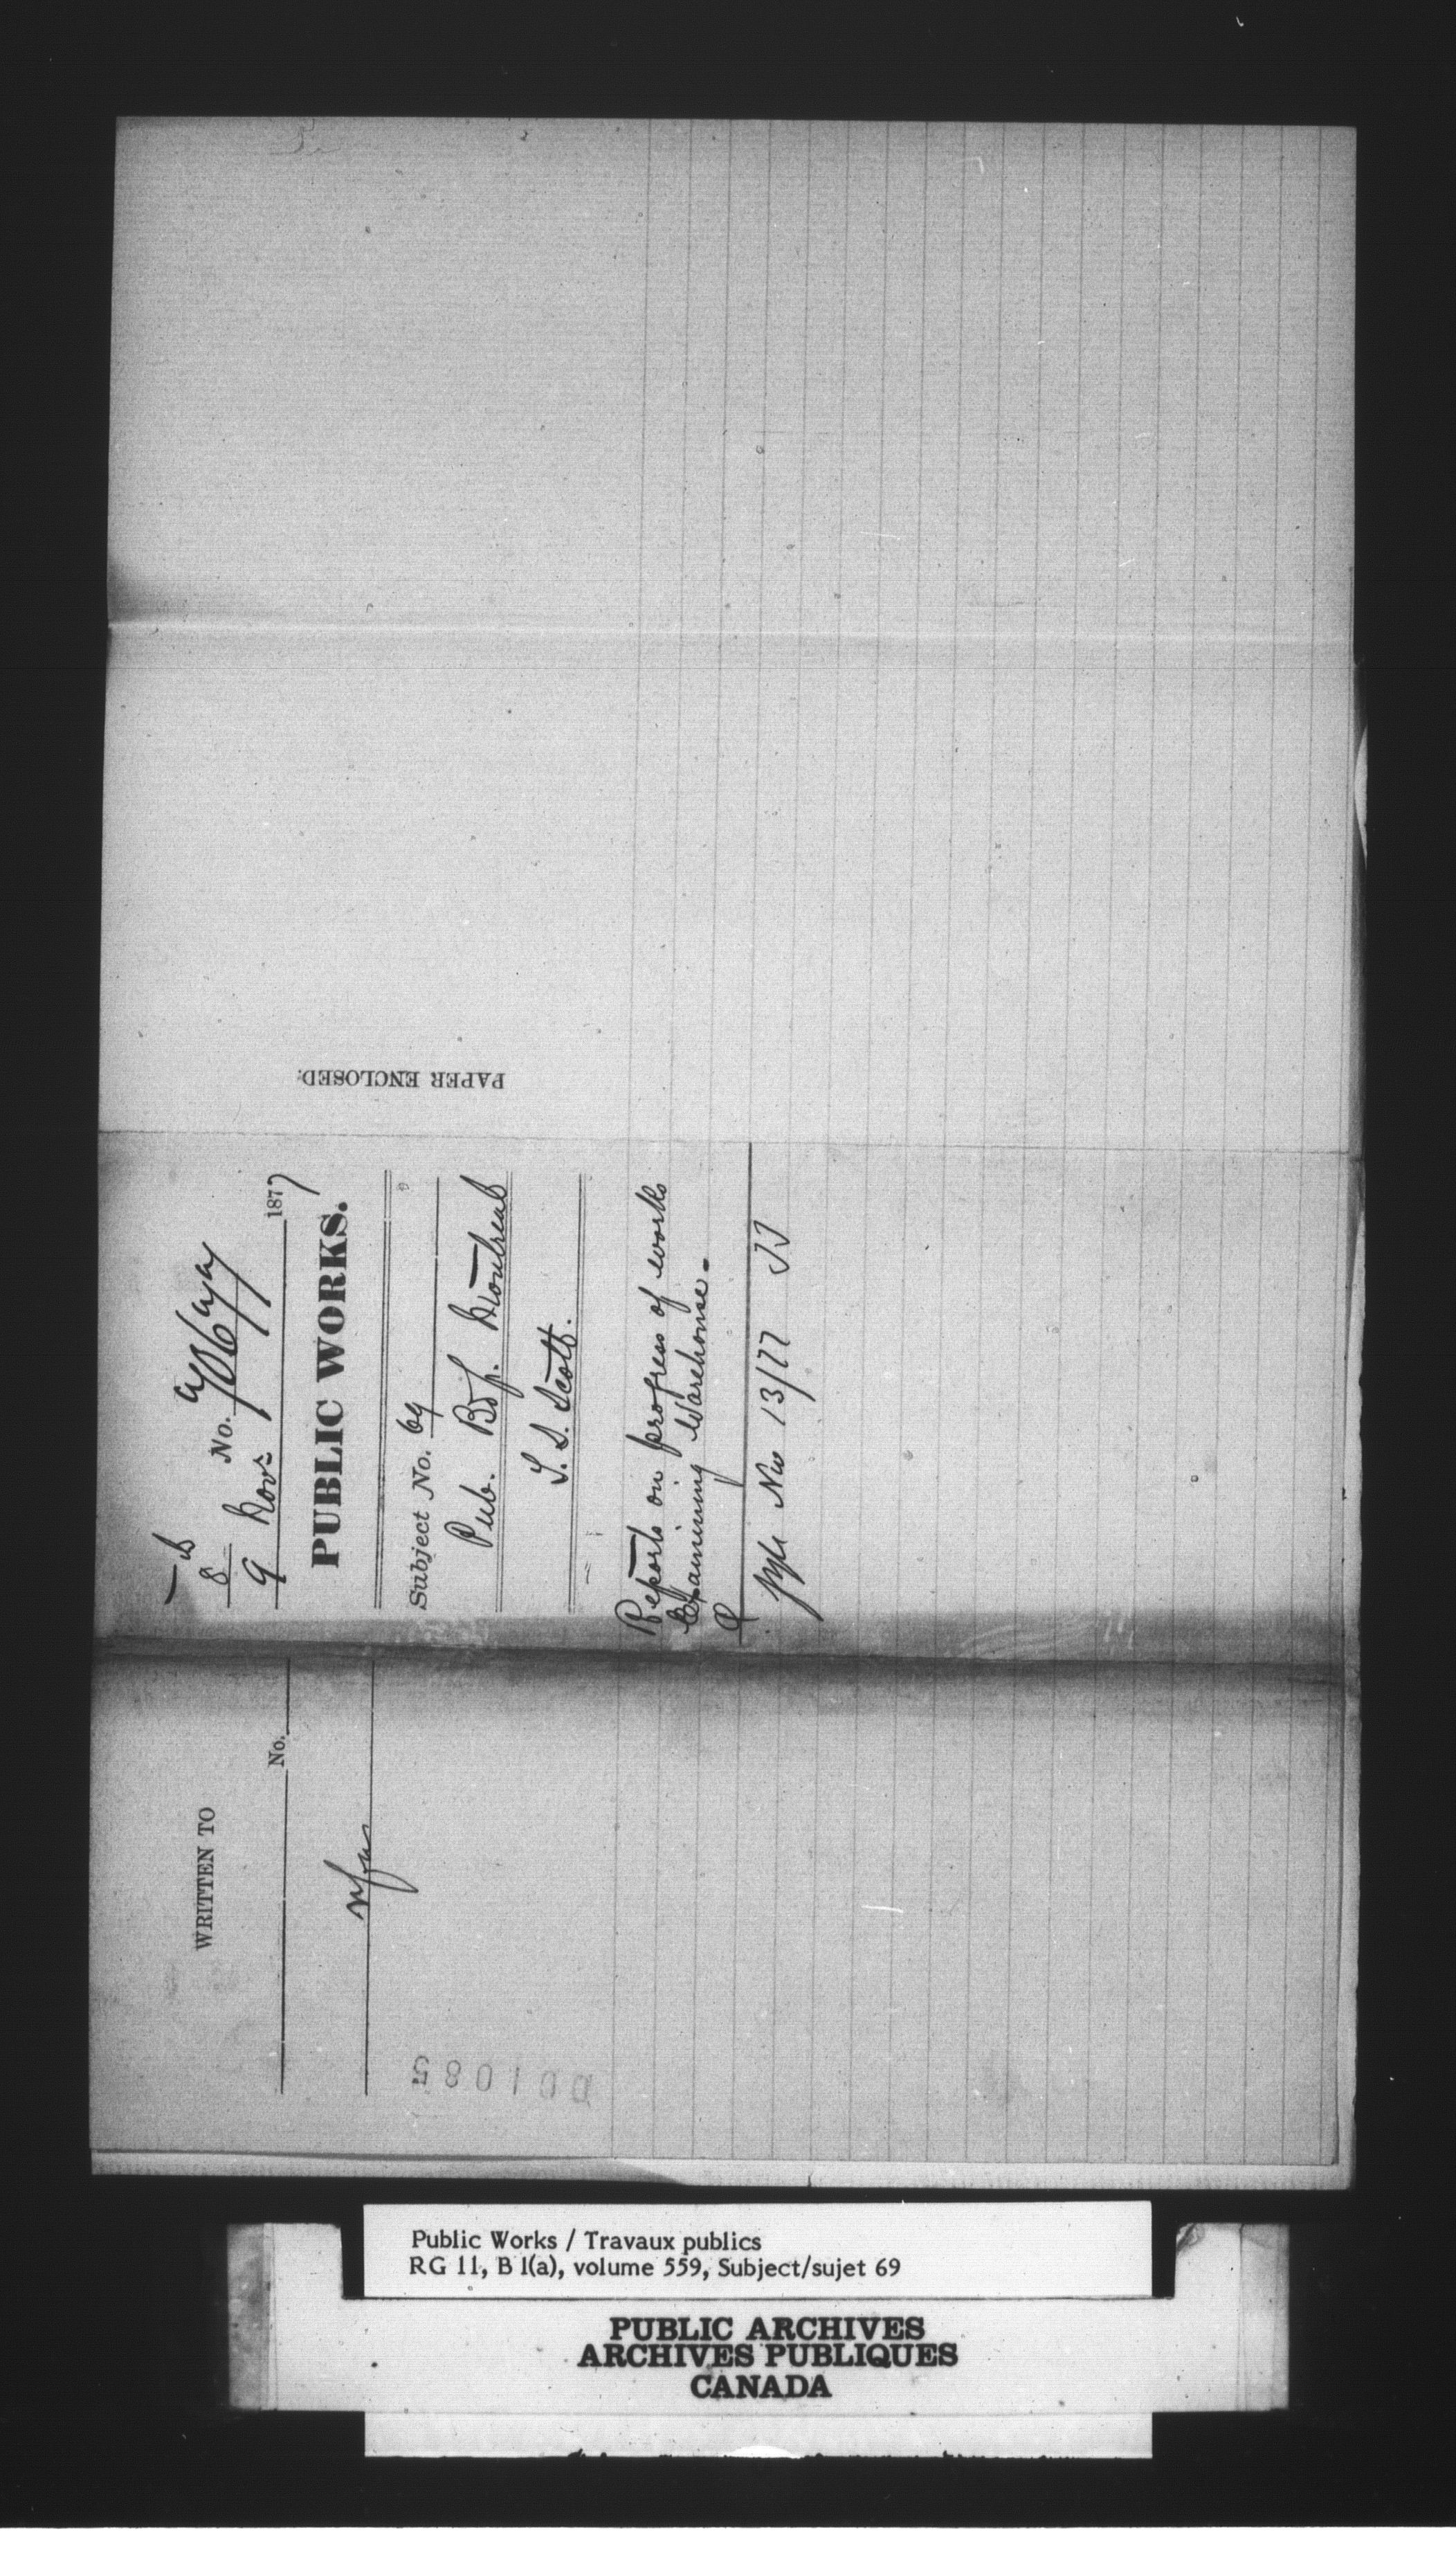 WRITTEN TO
No.
001085
8
9 Novr 1877
No.
PUBLIC WORKS.
Subject No. 69
Pub. Bdgs. Montreal
T. S. Scott.
Reports on progress of works
Examining Warehouse.
Nov 13/77
PAPER ENCLOSED.
Public Works / Travaux publics
RG 11, B 1(a), volume 559, Subject/sujet 69
PUBLIC ARCHIVES
ARCHIVES PUBLIQUES
CANADA